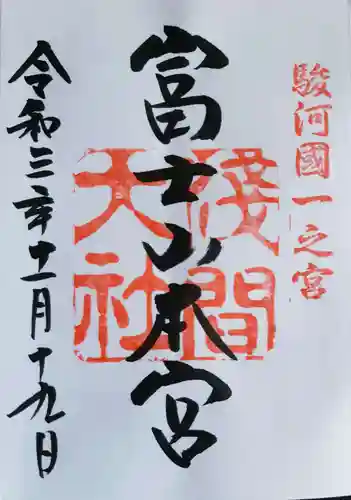 駿河國一之宮
富士山本宮
淺間大社
令和三年十一月十九日